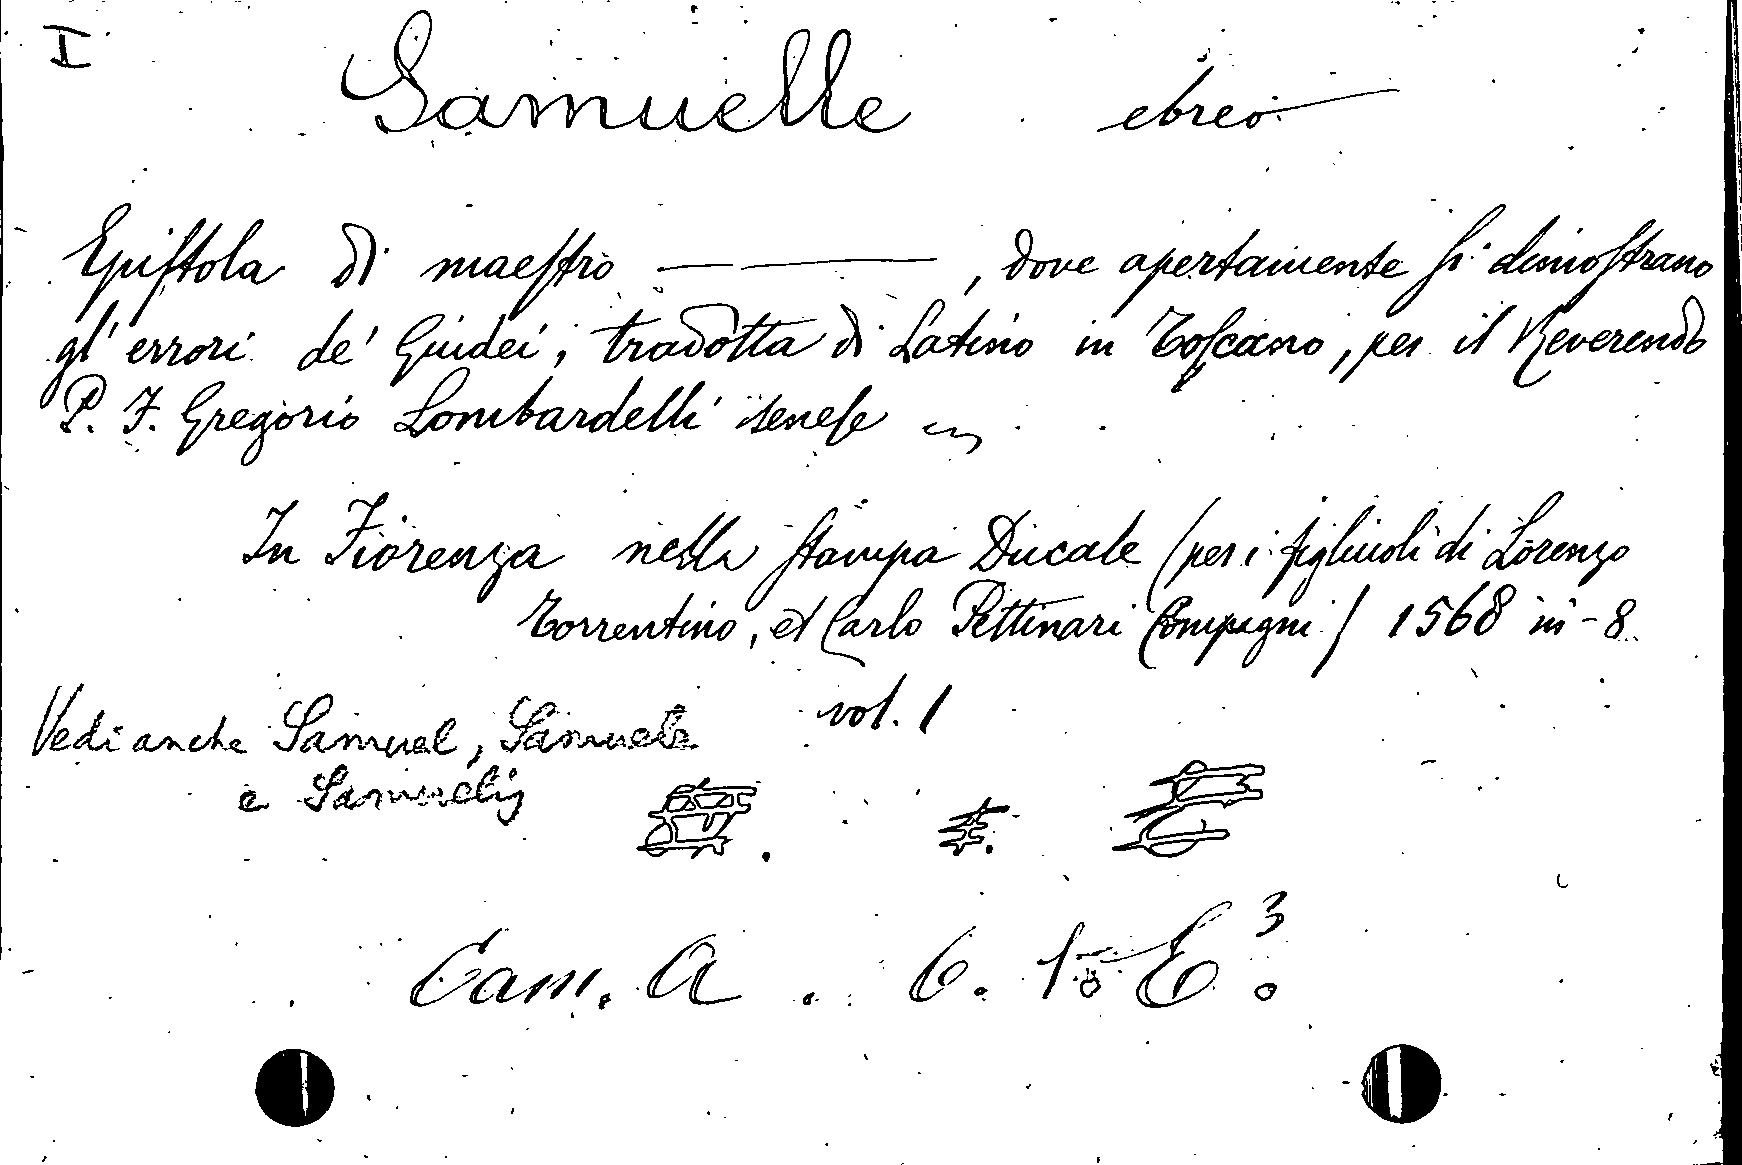 I
Samuelle ebreo
Epistola di maestro ——— , dove apertamente si dimostrano
gl' errori de' Giudei, tradotta di Latino in Toscano, per il Reverendo
P. F. Gregorio Lombardelli senese
In Fiorenza nella stampa Ducale (per i figliuoli di Lorenzo
Torrentino, et Carlo Pettinari Compagni) 1568 in-8
vol. 1
Vedi anche Samuel, Samuele
e Samuelis
Cam. A . 6. 1º E³.